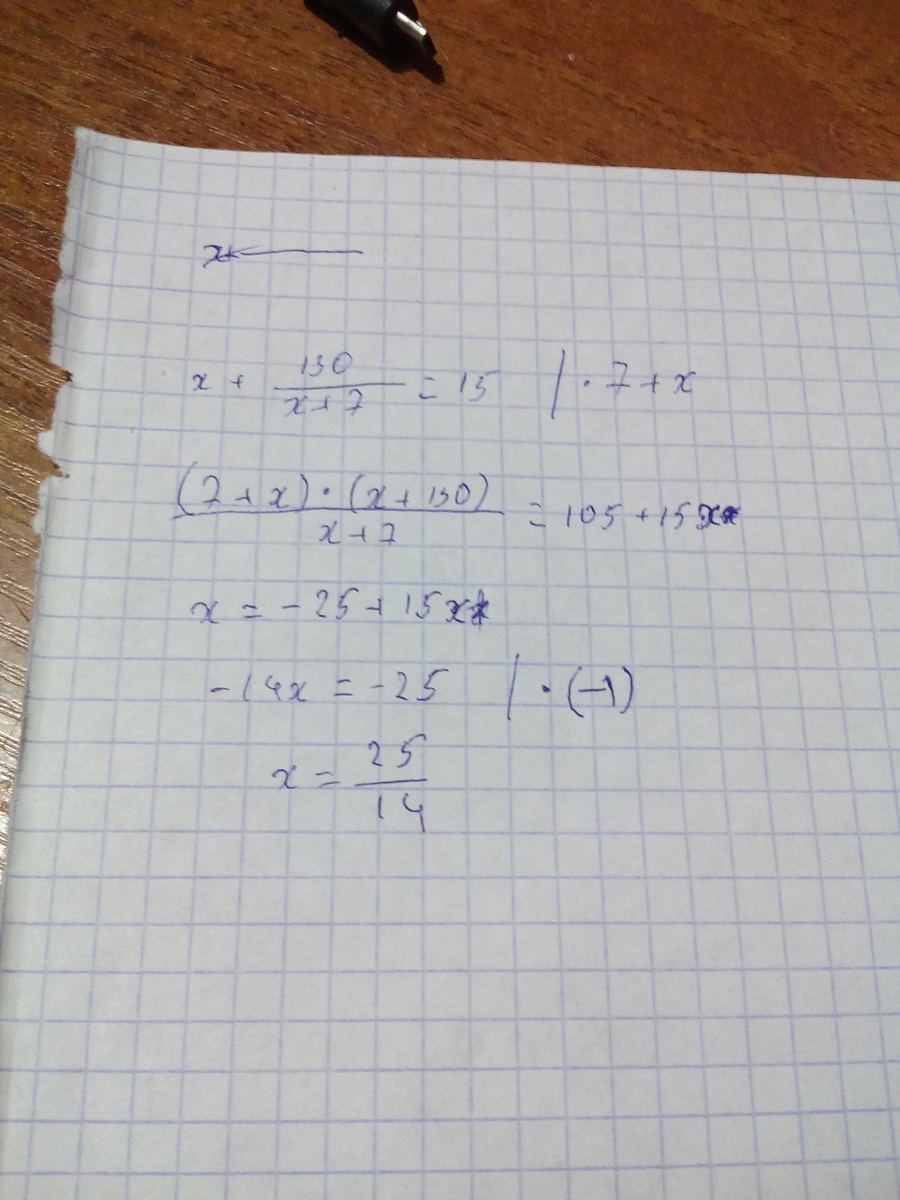 x
x + 130/(x+7) = 15 | · 7 + x
((7 + x) · (x + 130))/(x + 7) = 105 + 15x
x = -25 + 15x
-14x = -25 | · (-1)
x = 25/14